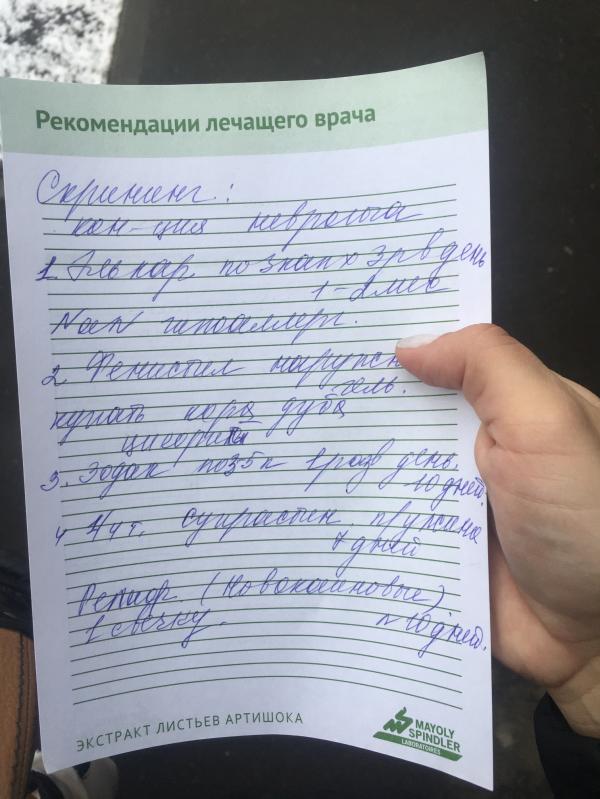 Рекомендации лечащего врача
Скрининг:
кон-ция невролога
1. Элькар по 3 кап х 3 р в день
1-2 мес
Nan гипоаллерг.
2. Фенистил наружн
гель.
купать кора дуба
3. Зодак по 5 к 1 раз в день.
10 дней.
4 супрастин
7 дней
(Новокаиновые)
1 свечку. 10 дней.
ЭКСТРАКТ ЛИСТЬЕВ АРТИШОКА
MAYOLY
SPINDLER
LABORATOIRES